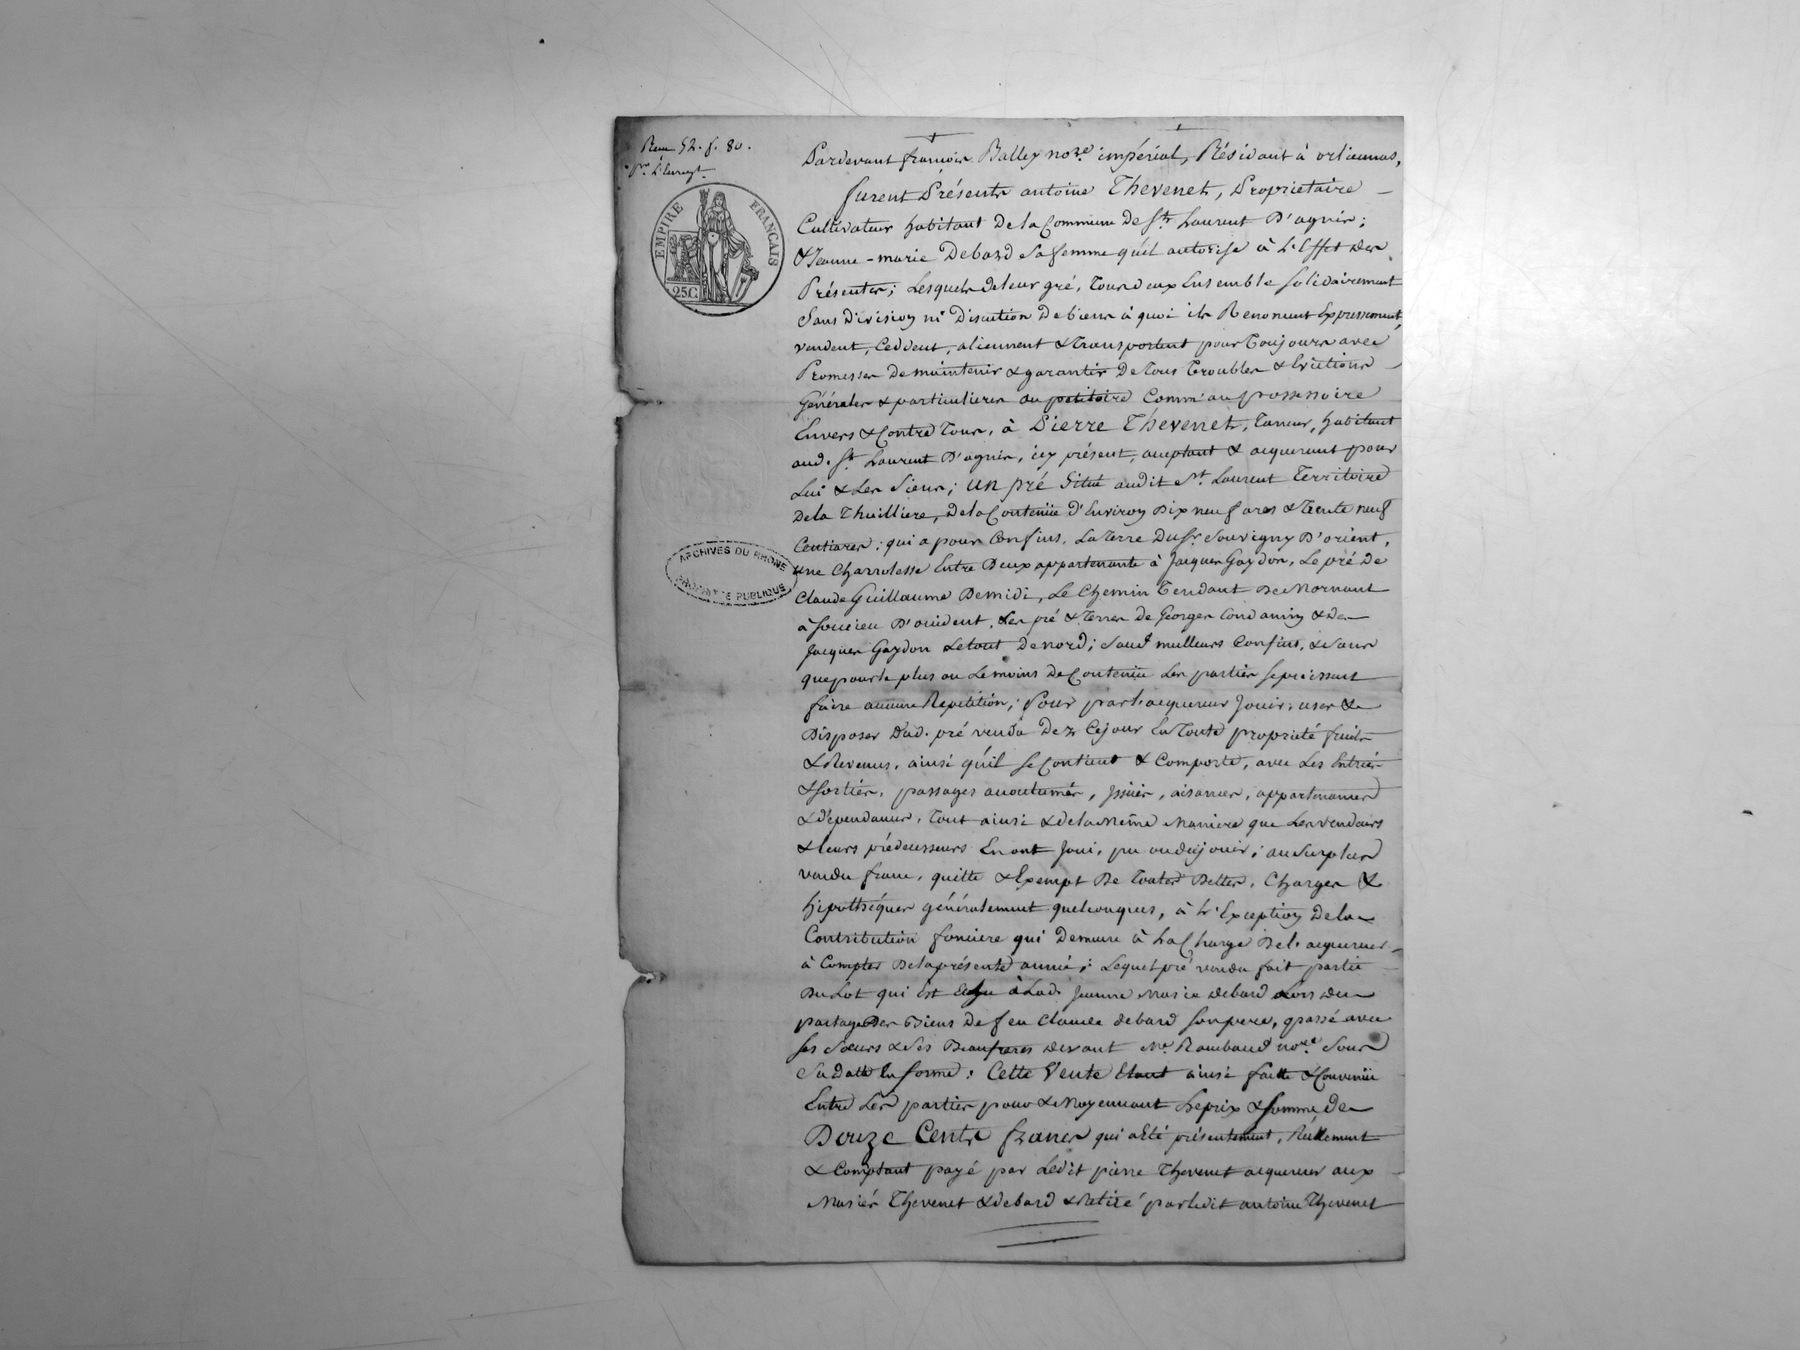 Reçu 52. f. 80.
pr. l'enregt.
EMPIRE FRANÇAIS
25C
ARCHIVES DU RHONE
PUBLIQUE
Pardevant françois Balley nore. impérial, Résidant à orliennas,
furent Présents antoine Thevenet, Propriétaire
Cultivateur habitant de la Commune de St. Laurent D'agnis;
& Jeanne-marie Debard Sa femme qu'il autorise à L'Effet des
Présentes; Lesquels de leur gré, Tous deux Ensemble Solidairement
Sans Division ni Discution De biens à quoi ils Renoncent Expressement,
vendent, Ceddent, alienent & transportent pour Toujours avec
Promesses De maintenir & garantir De Tous Troubles & Evictions
Générales & particulieres au petitoire Comm'au possessoire
Envers & Contre Tous, à Pierre Thevenet, Taneur, habitant
aud. St. Laurent D'agnis, icy présent, acceptant & acquerant pour
Lui & Les Siens; un pré Situé audit St. Laurent Territoire
De la Thuilliere, De la Contenüe d'Environ Dix neuf ares & Trente neuf
Centiares; qui a pour Confins, La Terre Du Sr. Souvigny D'orient,
une Charrolesse Entre Deux appartenante à Jacques Gaydon, Le pré De
Claude Guillaume De midi, Le Chemin Tendant De Mornant
à Soucieu D'occident, Les pré & Terres de Georges Condamin & de
Jacques Gaydon Le tout De nord; Sauf meilleurs Confins, & Sans
que pour le plus ou Le moins De Contenüe Les parties se puissent
faire aucune Repetition; Pour par l'acquereur Jouir, user &
Disposer Dud. pré vendu Dez Ce jour En Toute propriété fruits
& Revenus, ainsi qu'il se Contient & Comporte, avec Les Entrées
& Sorties, passages accoutumés, Issües, aisances, appartenances
& dépendances, Tout ainsi & de la Même Maniere que Les vendeurs
& leurs prédecesseurs En ont Joui, pu ou dû jouir; au Surplus
vendu franc, quitte & Exempt De Toutes Dettes, Charges &
hipothéques généralement quelconques, à L'Exception De la
Contribution fonciere qui Demeure à La Charge De l'acquereur
à Compter De la présente année; Lequel pré vendu fait partie
Du Lot qui Est Echu à Lad. Jeanne Marie Debard Lors du
partage Des Biens De feu Claude debard Son pere, passé avec
ses Sœurs & Ses Beaufreres devant Me. Rambaud nore. Sous
Sa Datte En forme: Cette Vente Etant ainsi faitte & Convenüe
Entre Les parties pour & Moyennant Le prix & Somme de
Douze Cents francs qui a Eté présentement, Réellement
& Comptant payé par Ledit pierre Thevenet acquereur aux
Mariés Thevenet & debard & Retiré par ledit antoine Thevenet